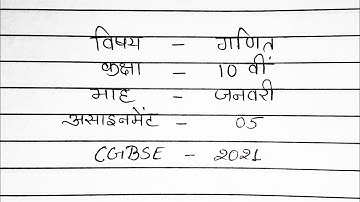 विषय - गणित
कक्षा - 10 वीं
माह - जनवरी
असाइनमेंट - 05
CGBSE - 2021